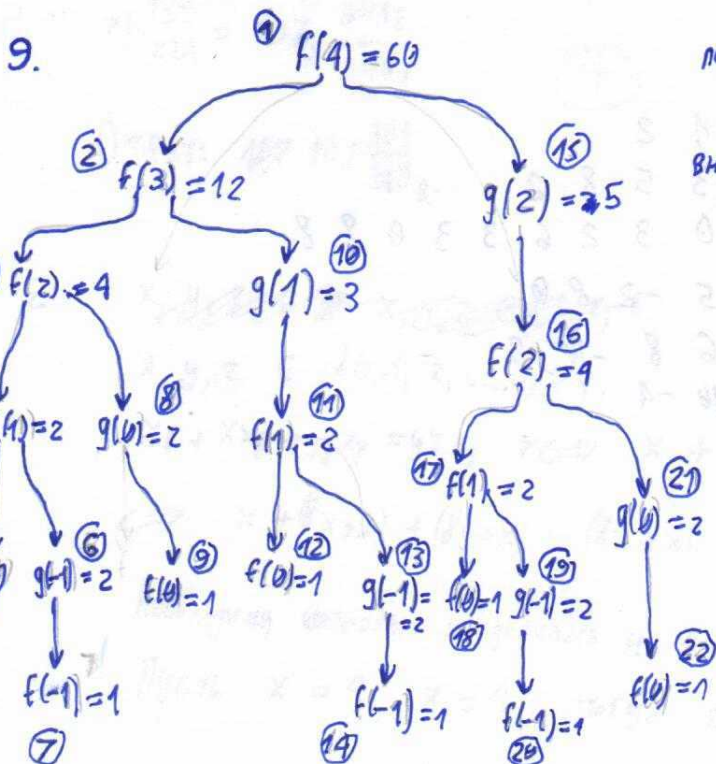 9.
① f(4)=60
② f(3)=12
⑮ g(2)=5
f(2)=4
⑩ g(1)=3
⑯ f(2)=4
(1)=2
⑧ g(0)=2
⑪ f(1)=2
⑰ f(1)=2
㉑ g(0)=2
⑥ g(-1)=2
⑨ f(0)=1
⑫ f(0)=1
⑬ g(-1)= =2
f(0)=1 ⑱
⑲ g(-1)=2
f(-1)=1 ⑦
f(-1)=1 ⑭
f(-1)=1 ⑳
㉒ f(0)=1